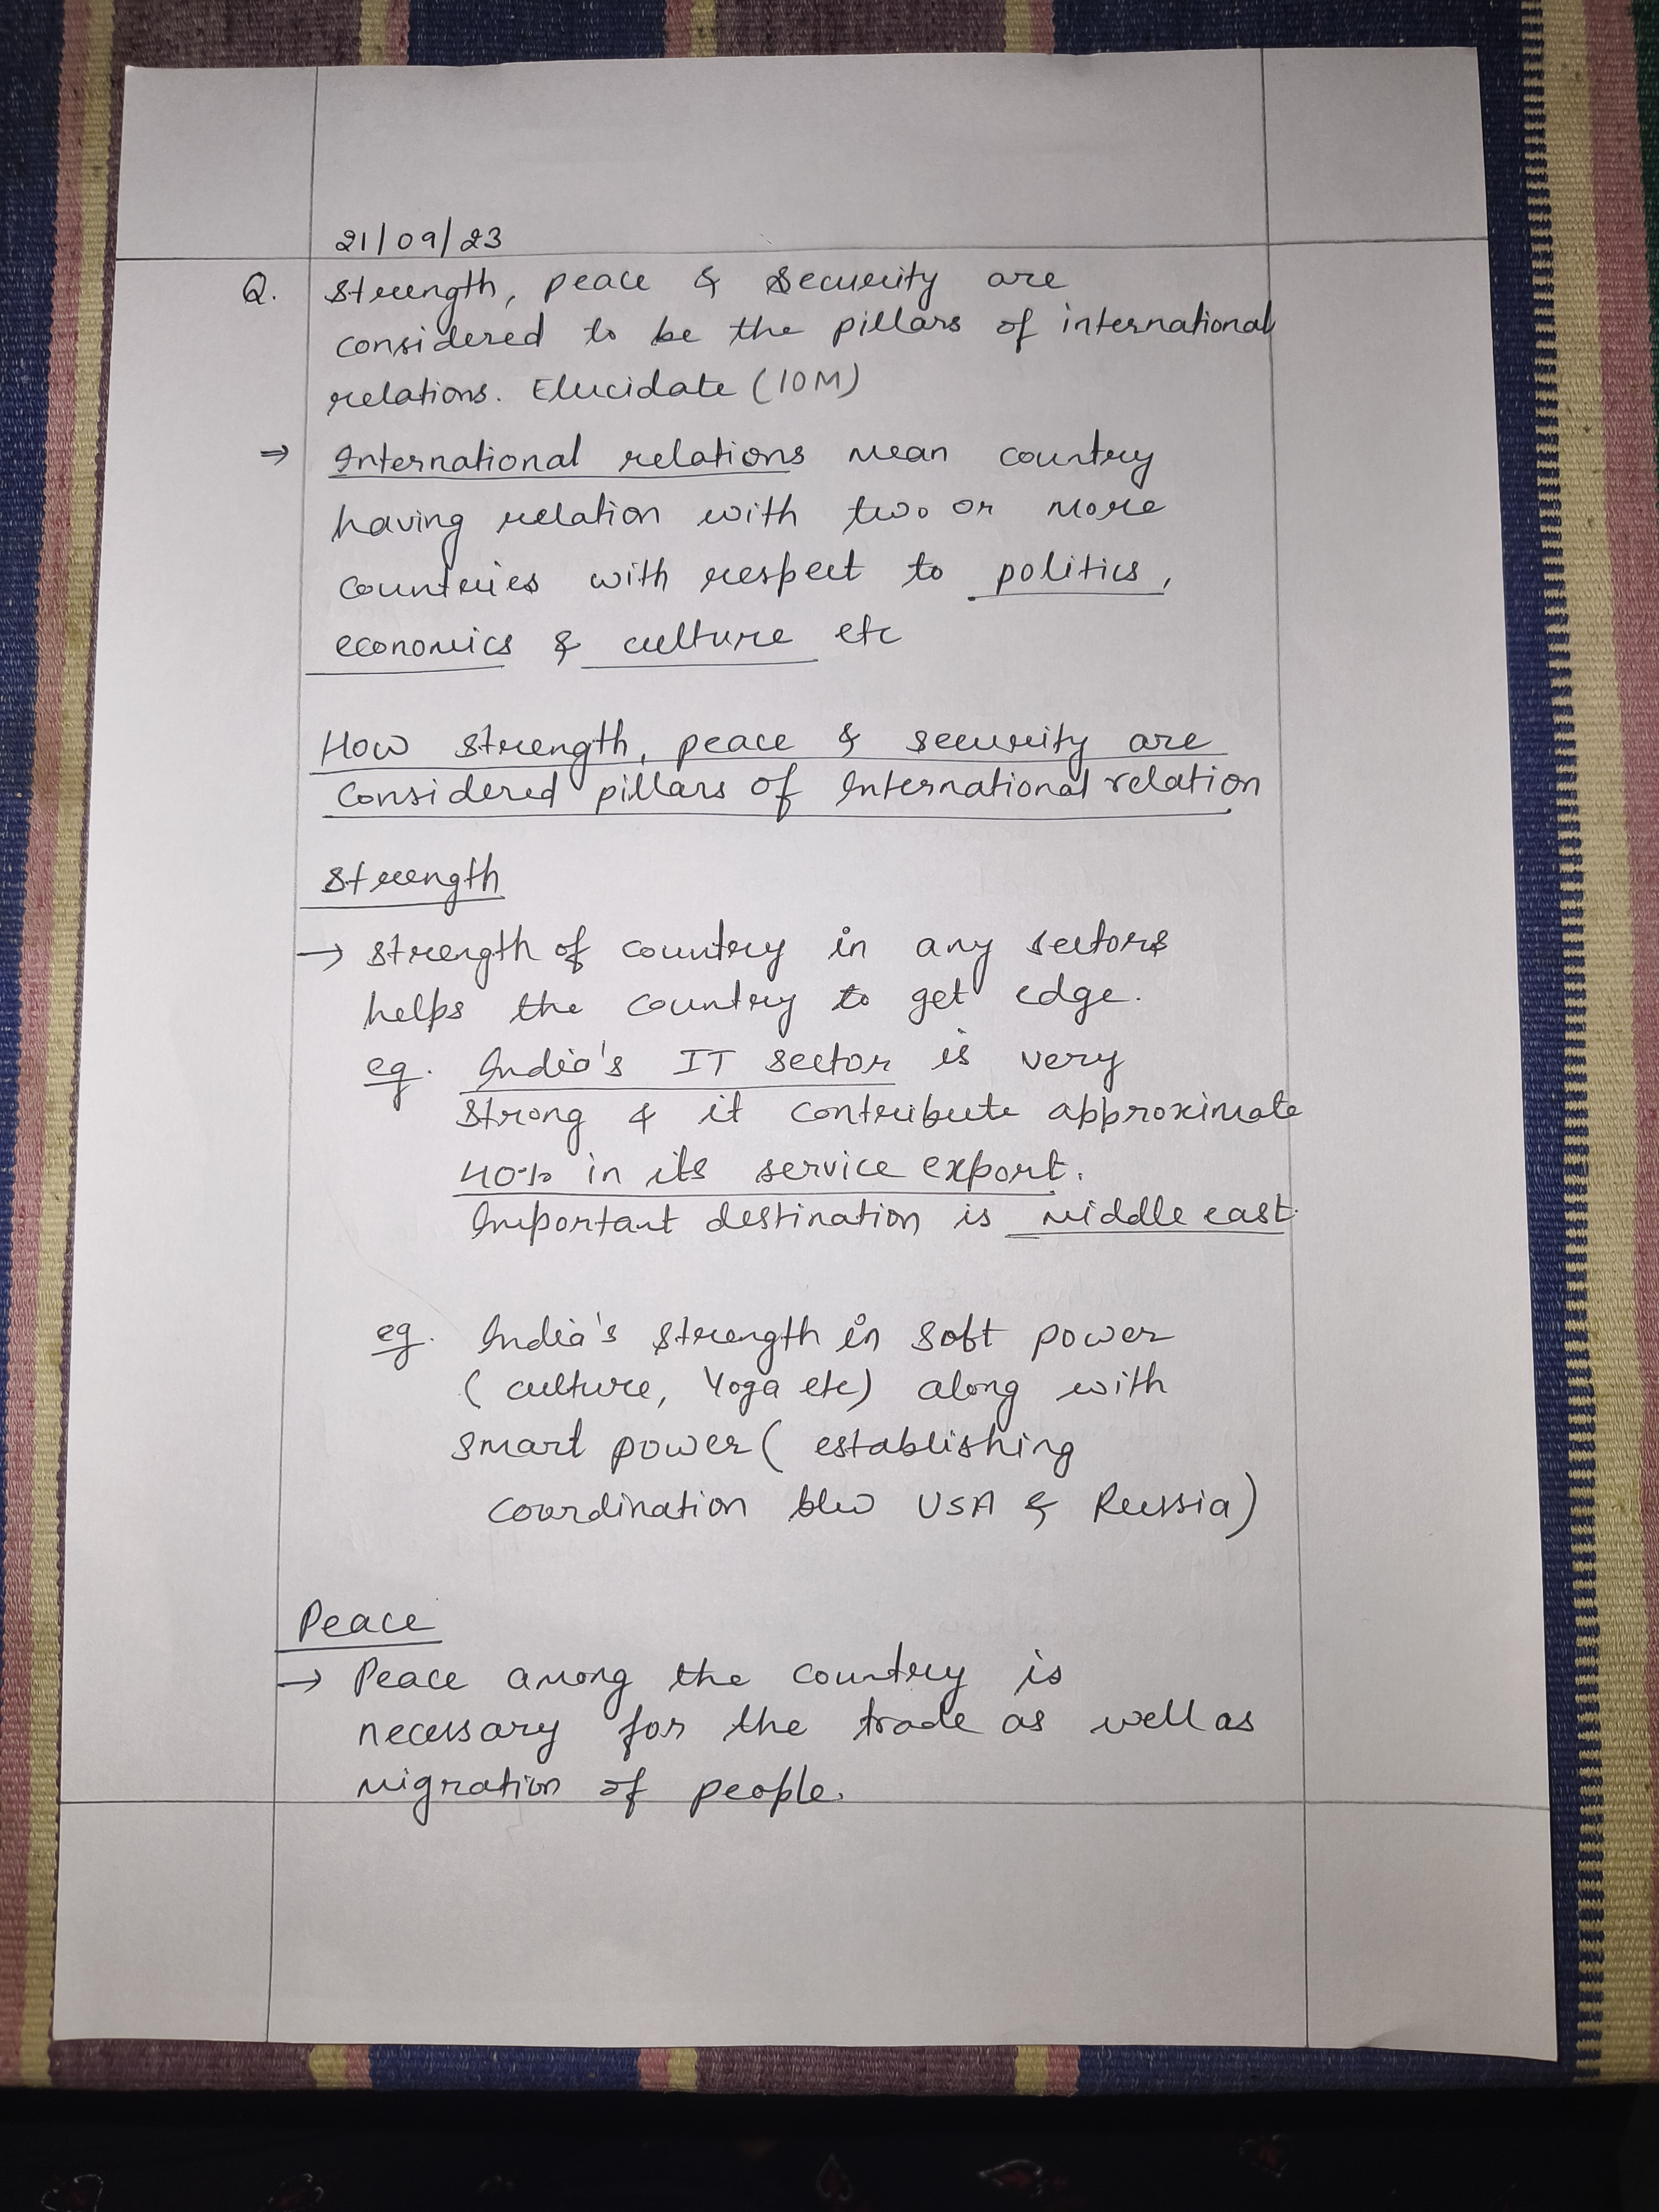 21/09/23
Q. Strength, peace & Security are
considered to be the pillars of international
relations. Elucidate (10M)
⇒ International relations mean country
having relation with two or more
countries with respect to politics,
economics & culture etc
How strength, peace & security are
Considered pillars of International relation
Strength
→ Strength of country in any sectors
helps the country to get edge.
eg. India's IT sector is very
Strong & it contribute approximate
40% in its service export.
Important destination is middle east.
eg. India's strength in soft power
( culture, Yoga etc) along with
smart power ( establishing
coordination b/w USA & Russia)
Peace
→ Peace among the country is
necessary for the trade as well as
migration of people.